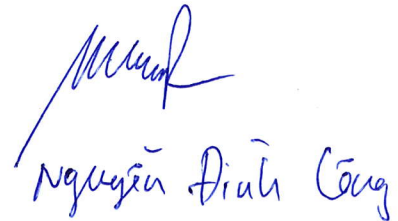 Nguyễn Đình Công